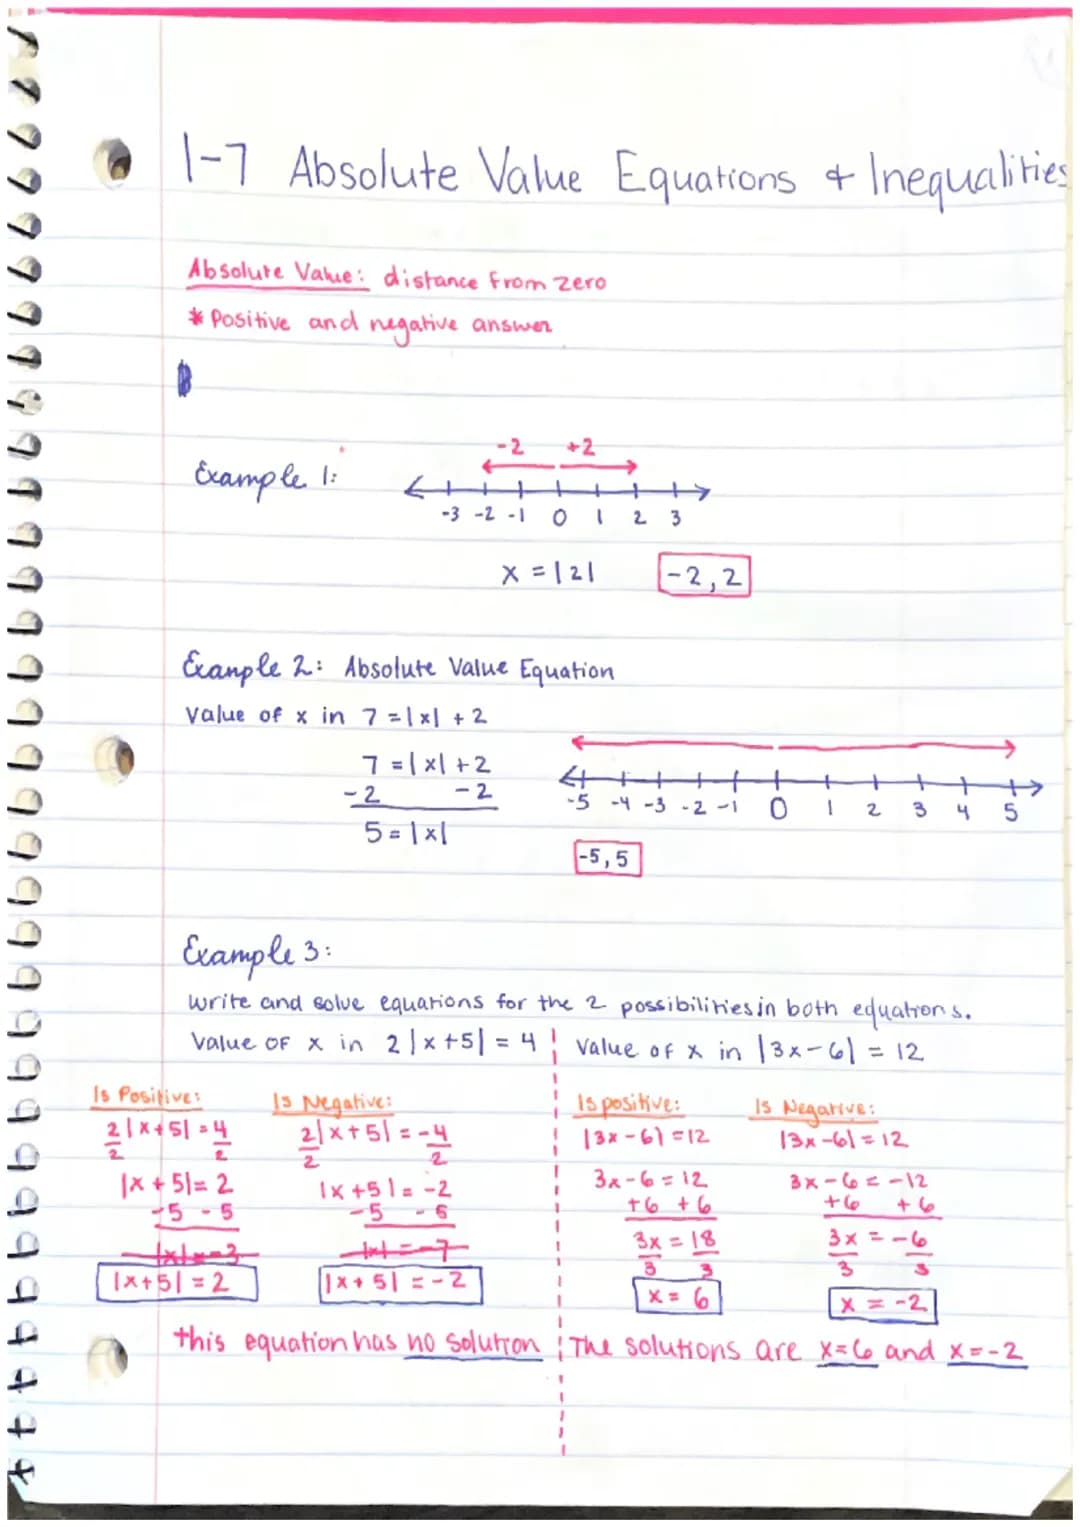 1-7 Absolute Value Equations & Inequalities
Absolute Value: distance from zero
* Positive and negative answer
-2 +2
Example 1:
-3 -2 -1 0 1 2 3
x = |2| -2, 2
Example 2: Absolute Value Equation
Value of x in 7 = |x| + 2
7 = |x| + 2
-2 -2
5 = |x|
-5 -4 -3 -2 -1 0 1 2 3 4 5
-5, 5
Example 3:
write and solve equations for the 2 possibilities in both equations.
Value of x in 2|x+5| = 4
Is Positive:
2|x+5| = 4
2 2
|x+5| = 2
-5 -5
|x| = -3
|x+5| = 2
Is Negative:
2|x+5| = -4
2 2
|x+5| = -2
-5 -5
|x| = -7
|x+5| = -2
this equation has no solution
Value of x in |3x-6| = 12
Is positive:
|3x-6| = 12
3x-6 = 12
+6 +6
3x = 18
3 3
x = 6
Is Negative:
|3x-6| = 12
3x-6 = -12
+6 +6
3x = -6
3 3
x = -2
The solutions are x=6 and x=-2